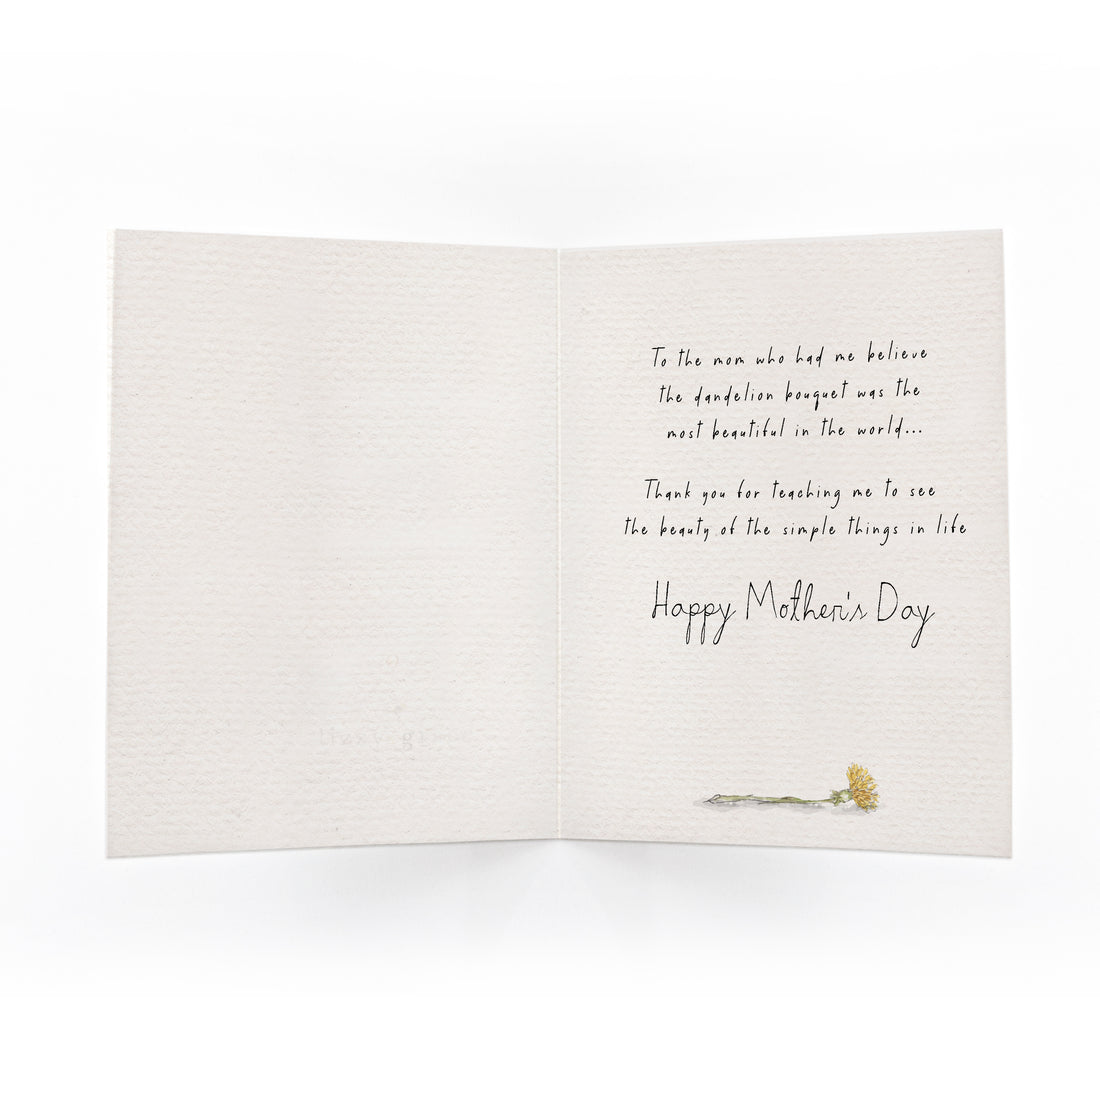 To the mom who had me believe
the dandelion bouquet was the
most beautiful in the world...
Thank you for teaching me to see
the beauty of the simple things in life
Happy Mother's Day